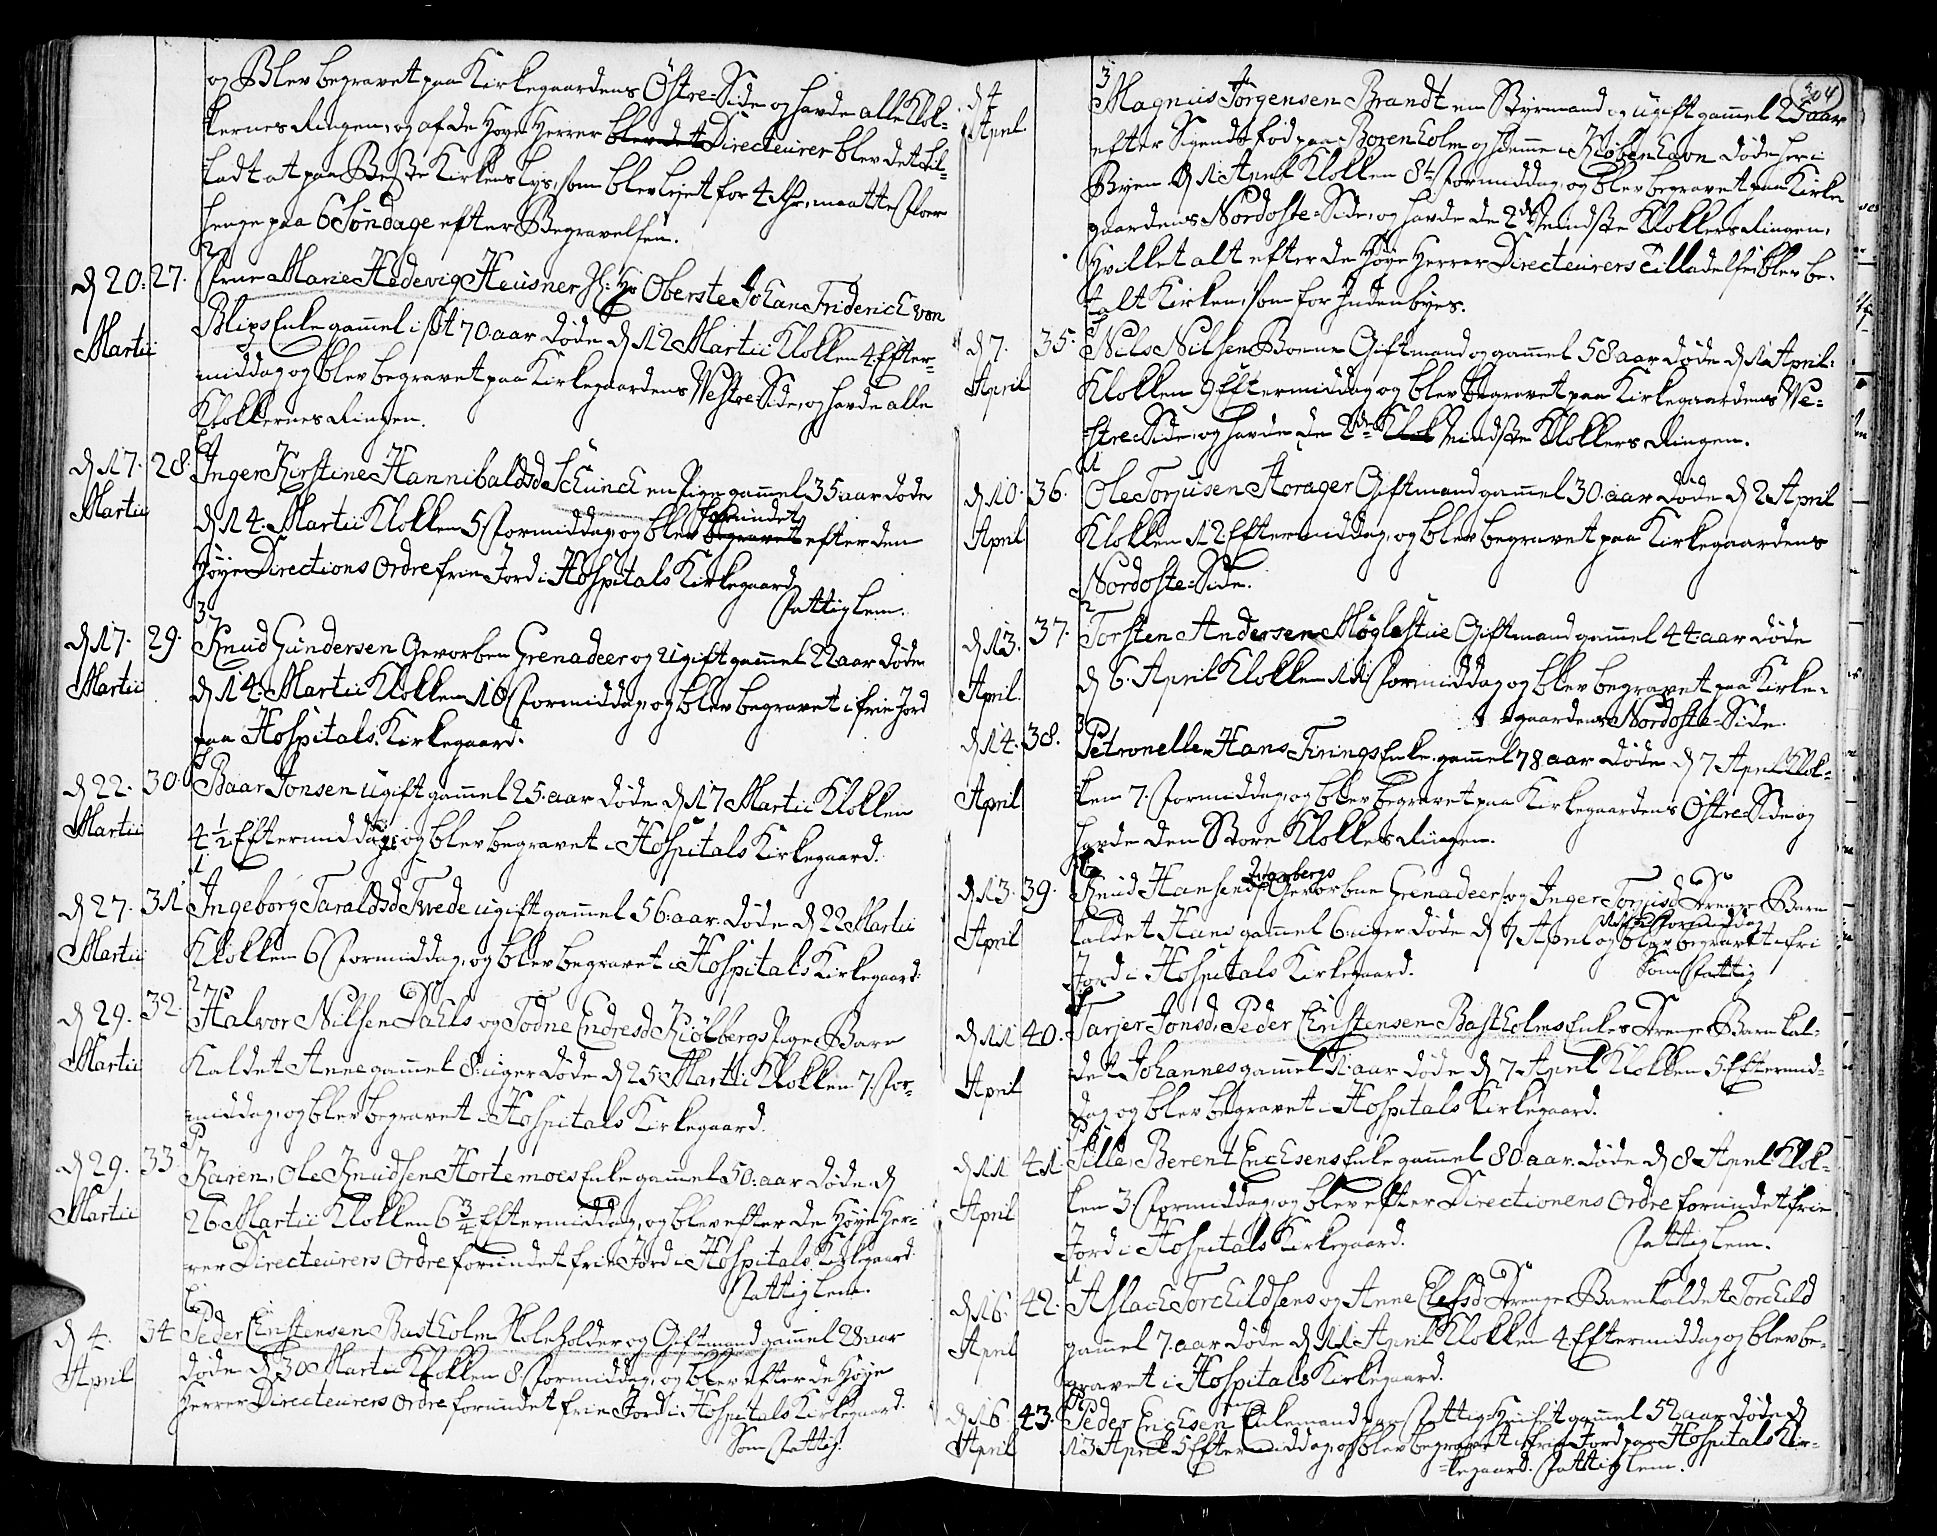 og Blev begravet paa Kirkegaardens Östre-Side og havde alle Klok-
kernes Ringen, og af de Høye Herrer blev det Directeurer blev det til-
ladt at paa Beste Kirkens lys, som blev leyet for 4 rdr, maatte
henge paa 6 Söndage efter Begravelsen.
2
d 20. 27. Frue Marie Hedevig Heüsner Hr. Oberste Johan Friderich von
Blips Enke gammel i sit 70 aar døde d 12 Martii Klokken 4 Efter-
Martii
middag og blev begravet paa Kirkegaardens Vestre-Side, og havde alle
Klokkernes Ringen.
d 17. 28. Inger Kirstine Hannibaldsd Schünch en Pige gammel 35 aar døde
Martii
d 14. Martii Klokken 5 Formiddag, og blev begravet forundet efter den
Høye Directions Ordre frie Jord i Hospitals Kirkegaard
Fattiglem.
3
d 17. 29. Knud Gundersen Gevorben Grenadeer og ugift gammel 22 aar døde
Martii d 14. Martii Klokken 10 Formiddag, og blev begravet i frie Jord
paa Hospitals Kirkegaard.
d 22. 30. Baar Jonsen ugift gammel 25. aar døde d 17 Martii Klokken
Martii 4 1/2 Eftermiddag, og blev begravet i Hospitals Kirkegaard.
1
d 27. 31 Ingeborg Taraldsd Tvede ugift gammel 56. aar. døde d 22 Martii
Martii Klokken 6 Formiddag, og blev begravet i Hospitals Kirkegaard.
2
d 29. 32. Halvor Nilsen Dahls og Todne Endresd Kiölbergs Pige Barn
Martii Kaldet Anne gammel 8. uger døde d 25 Martii Klokken 7. For-
middag, og blev begravet i Hospitals Kirkegaard.
d 29. 33 Karen, Ole Knudsen Hortemoes Enke gammel 50. aar døde. d
Martii 26 Martii Klokken 6 3/4 Eftermiddag, og blev efter de Høye Her-
rer Directeurers Ordre forundet frie Jord i Hospitals Kirkegaard.
Fattiglem.
d 4. 34 Peder Christensen Bastholm Huleholder og Giftmand gammel 28 aar
April døde d 30 Martii Klokken 8 Formiddag, og blev efter de Høye
Herrer Directeurers Ordre forundet frie Jord i Hospitals Kirkegaard.
Som Fattig.
304
3
d 4 Magnus Jørgensen Brandt en Styrmand og ugift gammel 25 aar
April efter Sigende fød paa Borenholm og hiemme i Kiøbenhavn døde her i
Byen d 1 April Klokken 8te Formiddag, og blev begravet paa Kirke
gaardens Nordoste-Side, og havde de 2de Mindste Klokkers Ringen,
Hvilket alt efter de Høye Herrer Directeurers Tilladelse blev be-
talt Kirken, som for Indenbyes.
d 7. 35. Nils Nilsen Boene Giftmand og gammel 58 aar døde d 1 April.
April Klokken 9 Eftermiddag og blev begravet paa Kirkegaardens Ve-
stre-Side, og havde de 2de Klok Mindste Klokkers Ringen.
1
d 10. 36. Ole Torjusen Aorager Giftmand gammel 30. aar døde d 2 April
April Klokken 12 Eftermiddag, og blev begravet paa Kirkegaardens
Nordoste-Side.
2
d 13. 37. Torsten Andersen Møglestue Giftmand gammel 44 aar døde
April. d 6. April Klokken 11 Formiddag og blev begravet paa Kirke-
gaardens Nordoste-Side.
3
d 14. 38. Petronelle Hans Finings Enke gammel 78 aar døde d 7 April Klok-
April ken 7. Formiddag, og blev begravet paa Kirkegaardens Östre-Side og
havde den Store Klokkes Ringen.
d 13. 39. Knud Hansens Gevorben Grenadeer, og Inger Torjusd Drenge Barn
April kaldet Hans gammel 6. uger døde d 7 April og blev begravet i fri
Jord i Hospitals Kirkegaard.
Som Fattig
d 11 40. Tarjer Jonsd, Peder Christensen Bastholms Enkes Drenge Barn kal-
April det Johannes gammel 1. aar døde d 7 April Klokken 5 Eftermid-
dag og blev begravet i Hospitals Kirkegaard.
d 11 41 Sille, Berent Erichsens Enke gammel 80. aar. døde d 8 April Klok-
April ken 3 Formiddag, og blev efter Directionens Ordre forundet frie
Jord i Hospitals Kirkegaard.
Fattiglem.
1
d 16. 42. Aslach Torchildsens og Anne Elefsd Drenge Barn kaldet Torchild
April gammel 7. aar døde d 11 April Klokken 4 Eftermiddag og blev be-
gravet i Hospitals Kirkegaard.
d 16 43. Peder Erichsen Enkemand paa Fattig Huuset gammel 52 aar døde d
April 13 April 5 Eftermiddag, og blev begravet i frie Jord paa Hospitals Kir-
kegaard. Fattiglem.